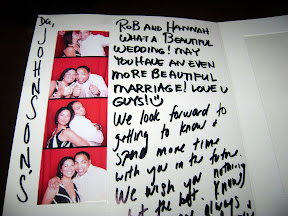 Da,
JOHNSONS
ROB AND HANNAH
WHAT A BEAUTIFUL
WEDDING! MAY
YOU HAVE AN EVEN
MORE BEAUTIFUL
MARRIAGE! LOVE U
GUYS!
We look forward to
getting to know &
spend more time
with you in the future.
We wish you nothing
but the best
always